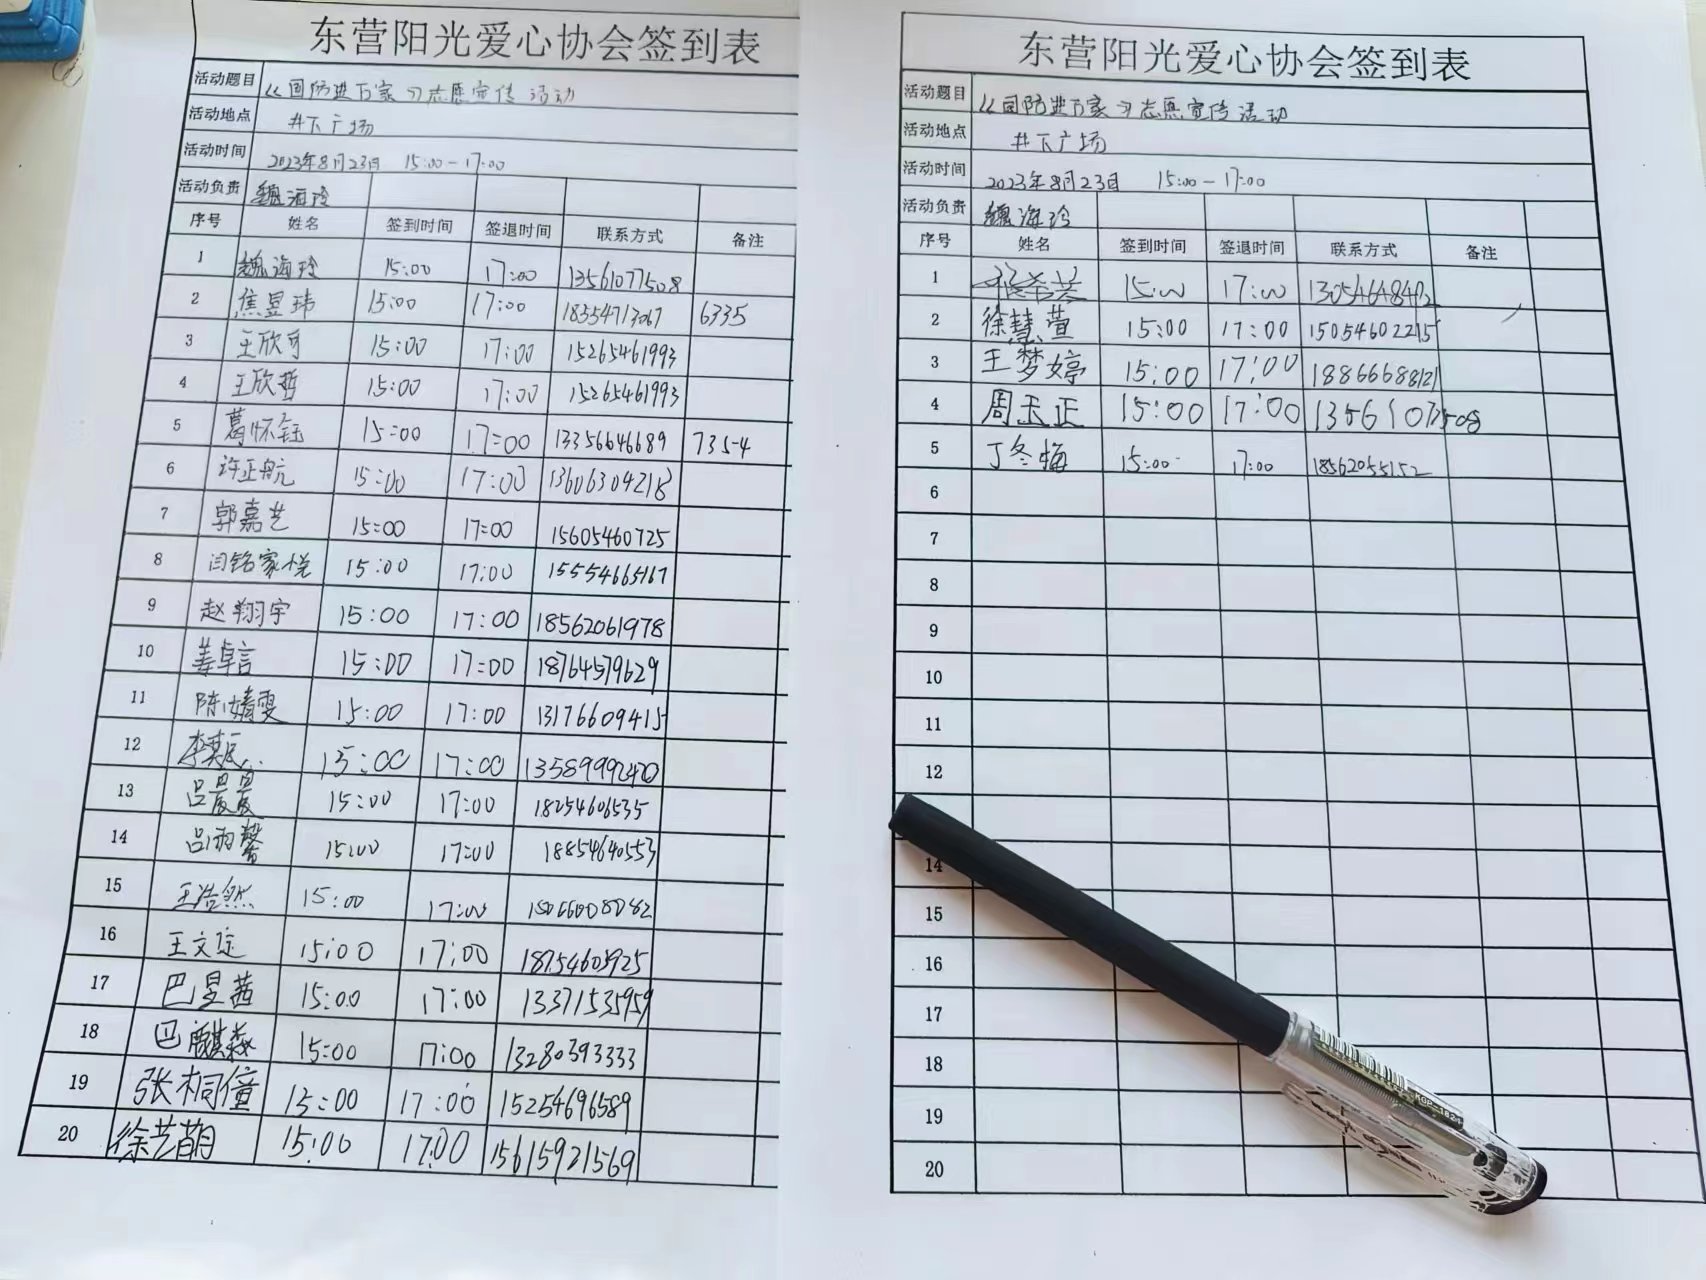 东营阳光爱心协会签到表
活动题目 《国防进万家》志愿宣传活动
活动地点 井下广场
活动时间 2023年8月23日 15:00-17:00
活动负责 魏海玲
序号 姓名 签到时间 签退时间 联系方式 备注
1 魏海玲 15:00 17:00 13561077508
2 焦昱玮 15:00 17:00 18554713067 6335
3 王欣可 15:00 17:00 15265461993
4 王欣哲 15:00 17:00 15265461993
5 葛怀钰 15:00 17:00 13356646689 7354
6 许正航 15:00 17:00 13606304218
7 郭嘉艺 15:00 17:00 15605460725
8 闫铭家悦 15:00 17:00 15554665167
9 赵翔宇 15:00 17:00 18562061978
10 姜卓言 15:00 17:00 18764579629
11 陈婧雯 15:00 17:00 13176609415
12 15:00 17:00 13589992420
13 吕晨 15:00 17:00 18254606535
14 吕雨馨 15:00 17:00 18854640553
15 王浩然 15:00 17:00
16 王文 15:00 17:00 18754605925
17 巴星茜 15:00 17:00 13371535959
18 巴麒淼 15:00 17:00 13280393333
19 张桐僮 15:00 17:00 15254696589
20 徐艺萌 15:00 17:00 15615921569
东营阳光爱心协会签到表
活动题目 《国防进万家》志愿宣传活动
活动地点 井下广场
活动时间 2023年8月23日 15:00-17:00
活动负责 魏海玲
序号 姓名 签到时间 签退时间 联系方式 备注
1 15:00 17:00
2 徐慧萱 15:00 17:00 15054602215
3 王梦婷 15:00 17:00 18866688121
4 周玉正 15:00 17:00 13561077508
5 丁冬梅 15:00 17:00 18562055152
6
7
8
9
10
11
12
14
15
16
17
18
19
20